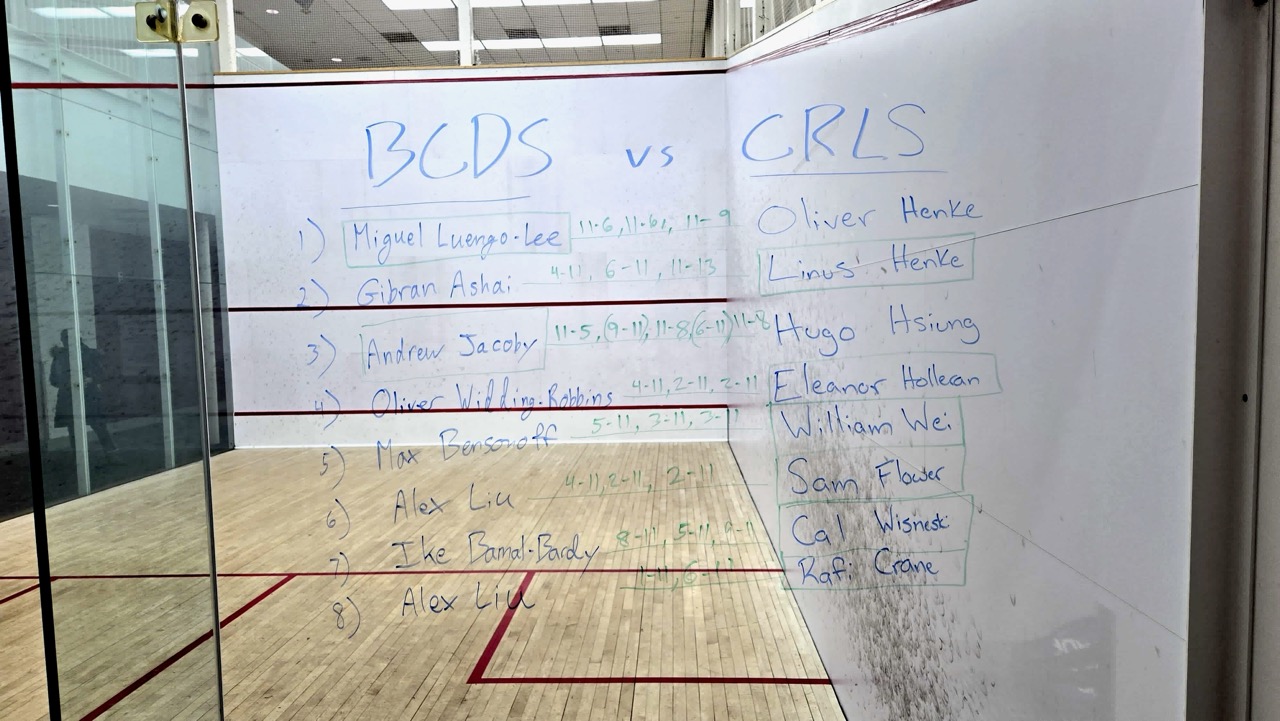 BCDS vs CRLS
1) Miguel Luengo-Lee 11-6, 11-6, 11-9 Oliver Henke
2) Gibran Ashai 4-11, 6-11, 11-13 Linus Henke
3) Andrew Jacoby 11-5, (9-11), 11-8, (6-11) 11-8 Hugo Hsiung
4) Oliver Widding-Robbins 4-11, 2-11, 2-11 Eleanor Holleran
5) Max Bensonoff 5-11, 3-11, 3-11 William Wei
6) Alex Liu 4-11, 2-11, 2-11 Sam Flower
7) Ike Bamal-Bardy 8-11, 5-11, Cal Wisneski
8) Alex Liu Rafi Crane